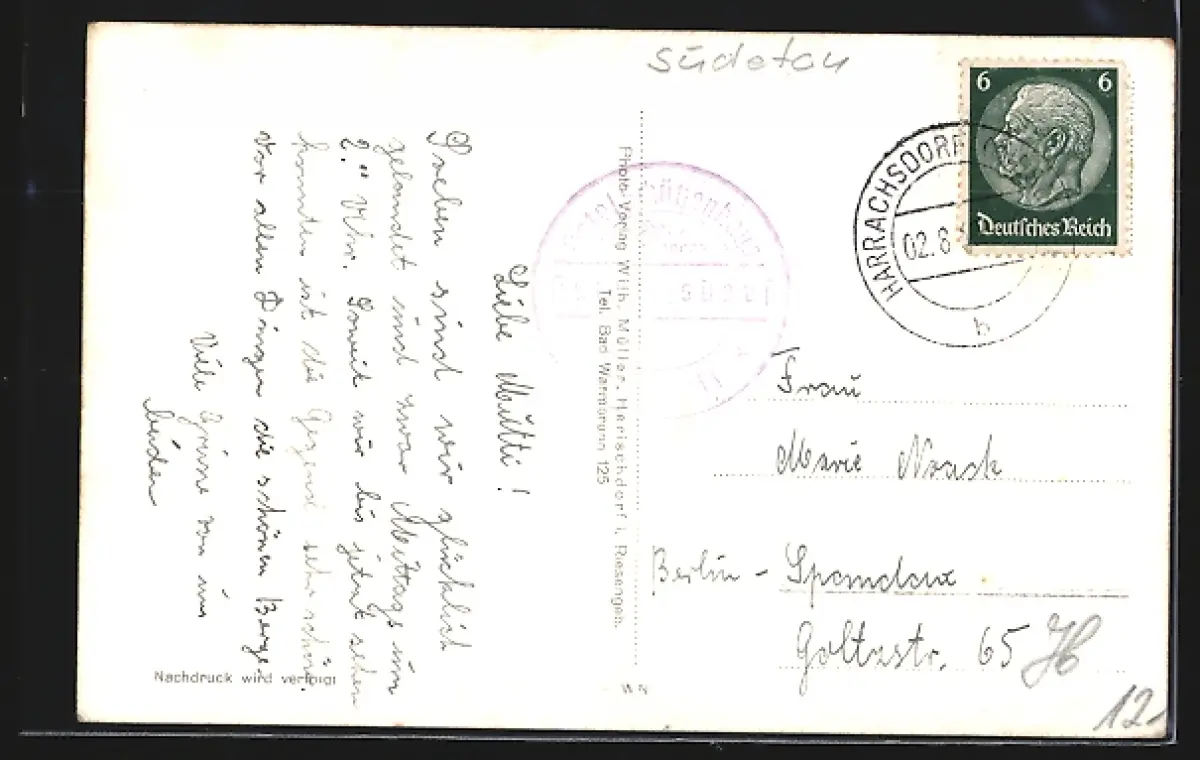 Südeten
6 6
Deutsches Reich
HARRACHSDORF
02.6
h
Liebe Mutti!
Soeben sind wir glücklich
gelandet und zwar Mittags um
2.°° Uhr. So weit wir bis jetzt sehen
konnten ist die Gegend sehr schön.
Vor allen Dingen die schönen Berge.
Viele Grüsse von uns
beiden
Nachdruck wird verfolgt
Photo-Verlag Wilh. Müller, Herischdorf i. Riesengeb.
Tel. Bad Warmbrunn 125
WN
Frau
Marie Noack
Berlin - Spandau
Goltzstr. 65
12